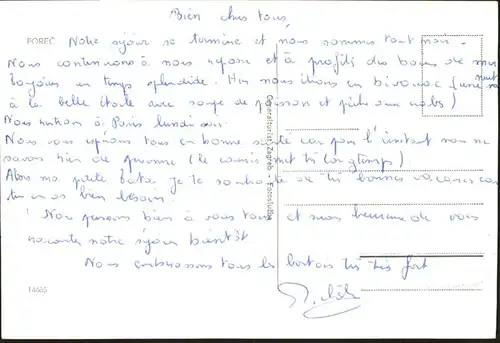 Bien chers tous,
POREC
Notre séjour se termine et nous sommes tout noir.
Nous continuons à nous reposer et à profiter des bains de mer
toujours un temps splendide. Hier nous étions en bivouac (une nuit
à la belle étoile avec soupe de poisson et pêche aux crabes)
Nous rentrons à Paris lundi soir.
Nous vous espérons tous en bonne santé car pour l'instant nous ne
savons rien de personne (le courrier met très longtemps)
Alors ma petite je te souhaite de très bonnes vacances car
tu en as bien besoin.
Nous pensons bien à vous tous et serons heureux de vous
raconter notre séjour bientôt
Nous embrassons tous les bretons très très fort
Generalturist - Zagreb - Fotostudio
14665